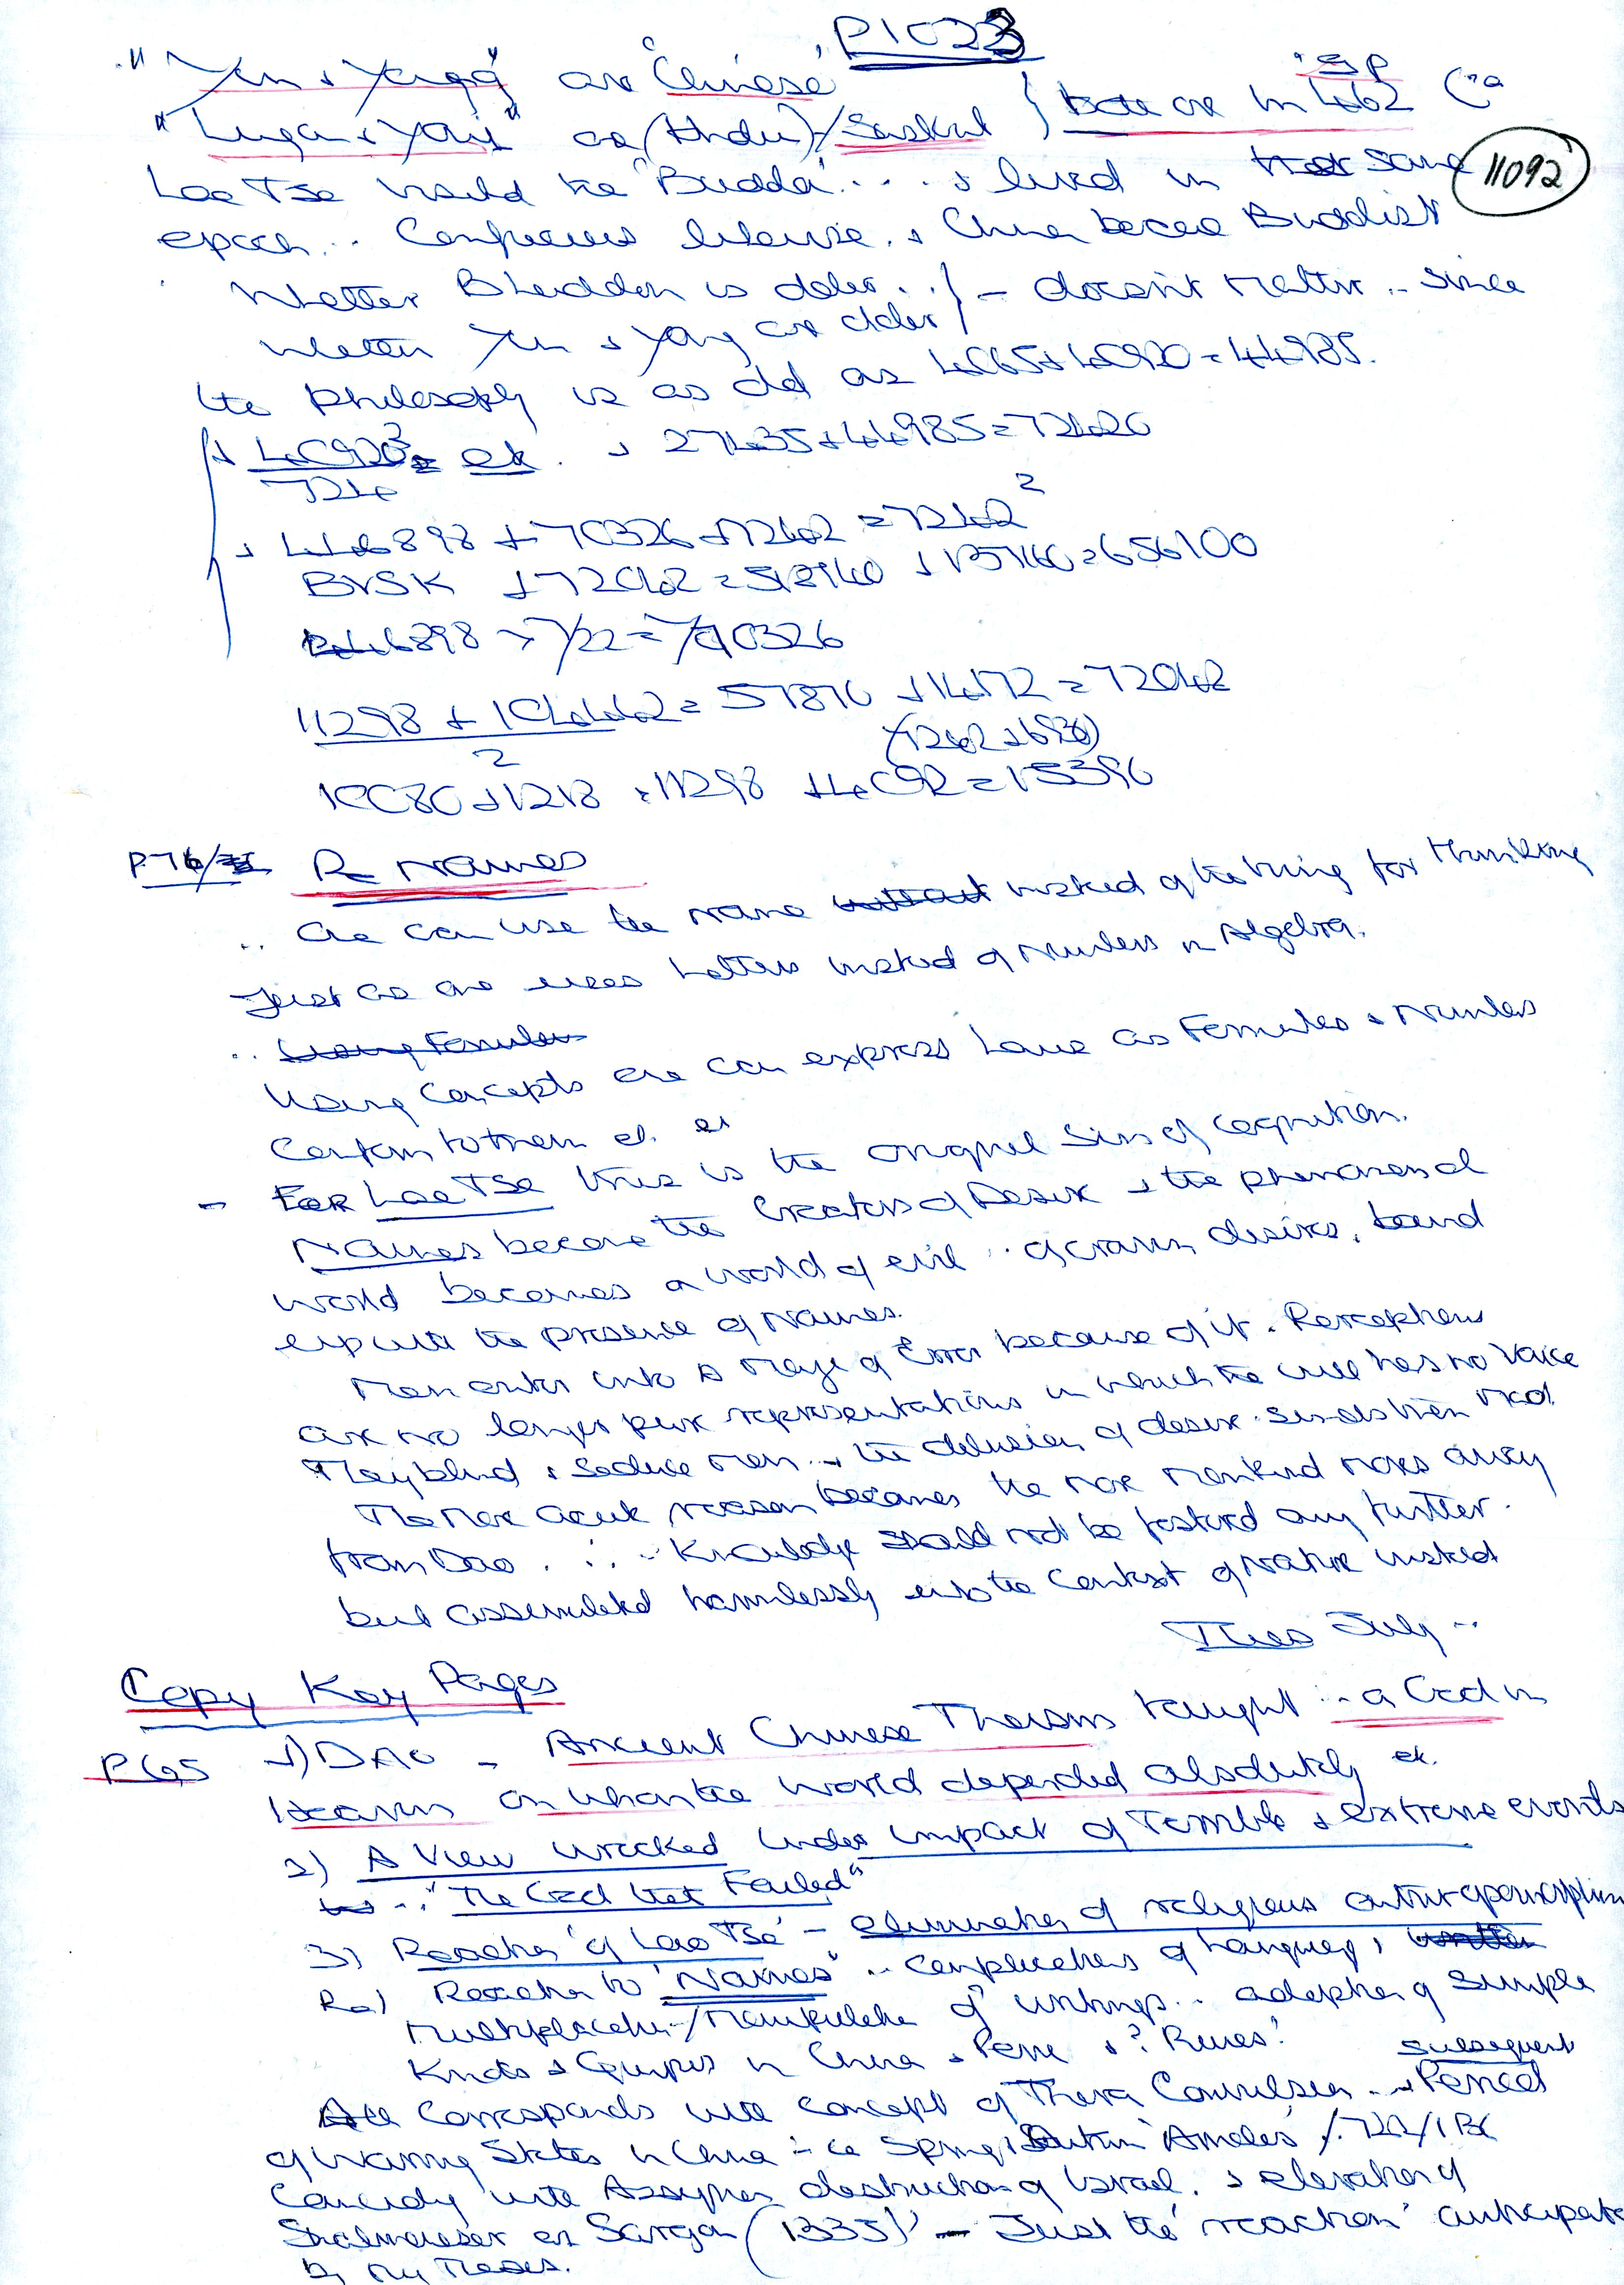 P1023
"Yin & Yang" are 'Chinese'
"Linga & Yoni" are (Hindu)/Sanskrit
11092
Lao Tse would be "Budda" ... & lived in same
epoch .. Confucius likewise. & China became Buddist
Whether Bhuddism is older .. / - doesn't matter .. since
whether Yin & Yang are older
the philosophy is as old as 4065+40920=44985.
& 40920³ = etc. & 27435+44985=72420
724
+ 70326 + 7242 = 7242²
+ 72042 =
898 > 7/22 =
11298 + 104442 = 57870 + 14172 = 72042
2
10080 + 1218 = 11298 + 4092 = 15390
P76/ Re Names
.. One can use the name instead of the thing for thinking
Just as one uses Letters instead of Numbers in Algebra.
Using Concepts one can express Laws as Formulas & Numbers
Conform to them etc.
- For Lao Tse this is the original Sin of Cognition.
Names become the Creators of Desire & the phenomenal
world becomes a world of evil .. of craven desires, bound
up with the presence of Names.
Man enters into a maze of Error because of it. Perceptions
are no longer pure representations in which the will has no Voice
They blind & seduce men .. & the delusion of desire sends them mad.
The More acute reason becomes the more mankind moves away
from Dao. ∴ - Knowledge should not be fostered any further.
but assimilated harmlessly into the Context of Nature instead
Thurs July ..
Copy Key Pages
P65 1) DAO - Ancient Chinese Theism taught .. a God in
Heaven on whom the World depended absolutely etc.
2) A View wrecked under impact of Terrible & extreme events
.. "The God that Failed"
3) Reaction of 'Lao Tse' - elimination of religious anthropomorphism
Re) Reaction to 'Names' .. complications of Language,
multiplication/Manipulation of writings .. adoption of simple
Knots & Quipus in China & Peru & ? Runes?
subsequent
All Corresponds with concept of Thera Convulsion .. & Period
of Warring States in China - ie Spring & Autumn 'Annales' /.722/1 BC
Coincidy with Assyrian destruction of Israel. & elevation of
Shalmaneser or Sargon (1335)' - Just the 'reaction' anticipated
by my Thesis.